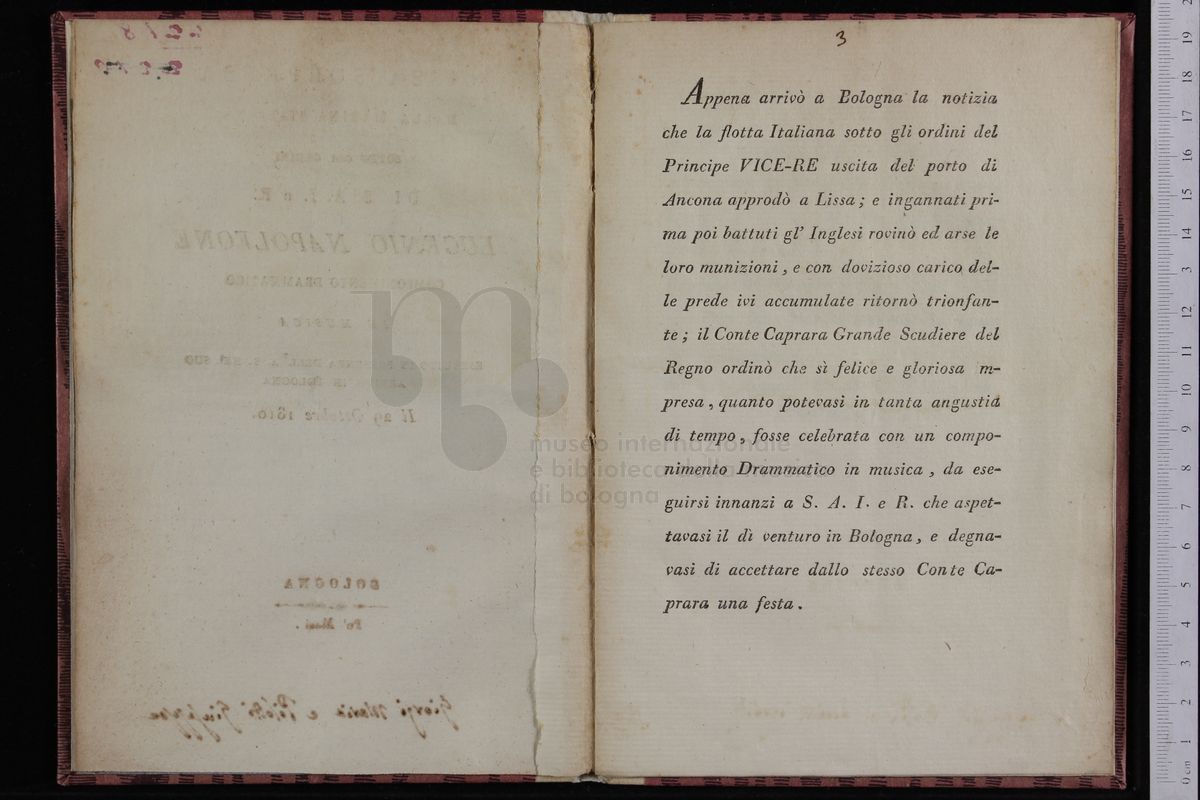 3
Appena arrivò a Bologna la notizia
che la flotta Italiana sotto gli ordini del
Principe VICE-RE uscita del porto di
Ancona approdò a Lissa; e ingannati pri-
ma poi battuti gl' Inglesi rovinò ed arse le
loro munizioni, e con dovizioso carico del-
le prede ivi accumulate ritornò trionfan-
te; il Conte Caprara Grande Scudiere del
Regno ordinò che sì felice e gloriosa m-
presa, quanto potevasi in tanta angustia
di tempo, fosse celebrata con un compo-
nimento Drammatico in musica, da ese-
guirsi innanzi a S. A. I. e R. che aspet-
tavasi il dì venturo in Bologna, e degna-
vasi di accettare dallo stesso Conte Ca-
prara una festa.
museo internazionale
e biblioteca della musica
di bologna
EUGENIO NAPOLEONE
Il 29 Ottobre 1810.
BOLOGNA